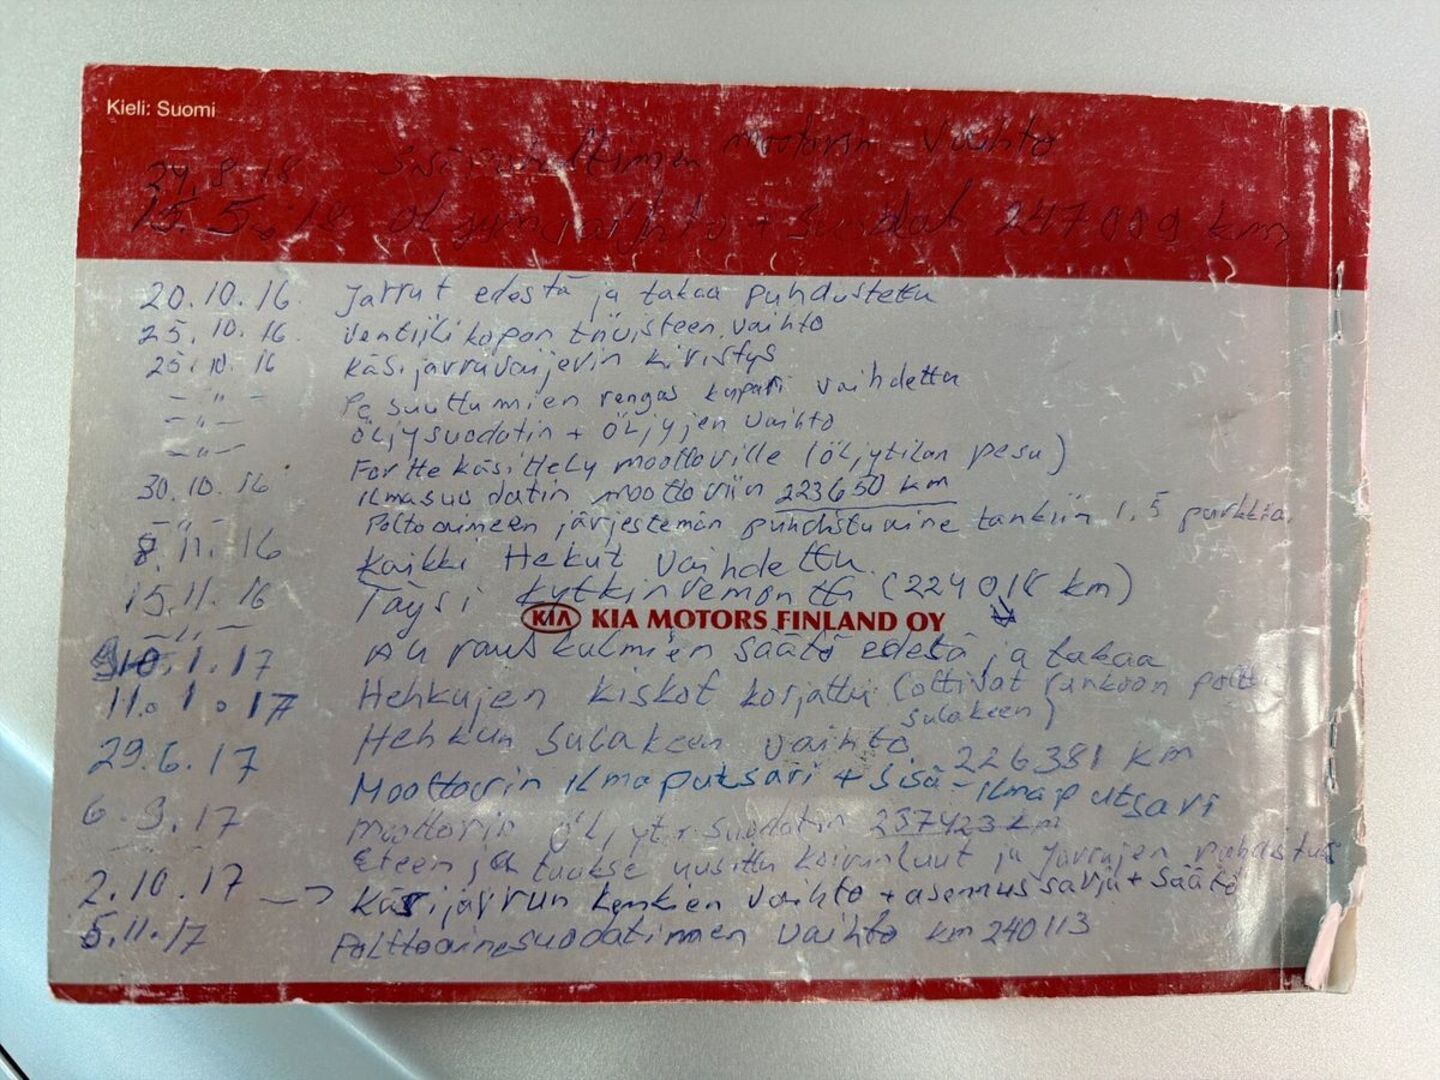 Kieli: Suomi
24.8.18 Sisäpuhaltimen moottorin vaihto
15.5.18 öljynvaihto + Suodat 247009 km
20.10.16 Jarrut edestä ja takaa puhdistettu
25.10.16 Ventiilikopan tiivisteen vaihto
25.10.16 Käsijarruvaijerin kiristys
-"- Pesuuttumien rengas kupari vaihdettu
-"- Öljysuodatin + Öljyjen vaihto
-"- Forte käsittely moottorille (öljytilan pesu)
30.10.16 Ilmasuodatin moottoriin 223650 km
-"- Polttoaineen järjestemän puhdistusaine tankiin 1,5 purkkia.
8.11.16 Kaikki Hekut Vaihdettu
15.11.16 Täysi Kytkinremontti (224018 km)
KIA KIA MOTORS FINLAND OY
-"- Auraus kulmien säätö edestä ja takaa
10.1.17 Hehkujen kiskot korjattu (ottivat runkoon poltti
sulakeen)
11.1.17 Hehkun Sulakeen vaihto 226381 km
29.6.17 Moottorin ilmaputsari + sisä-ilmaputsari
6.9.17 Moottorin öljyt + suodatin 237423 km
Eteen ja taakse uusittu koiranluut ja Jarrujen puhdistus
2.10.17 -> Käsijarrun kenkien vaihto + asennussarja + säätö
5.11.17 Polttoainesuodatinmen vaihto km 240113